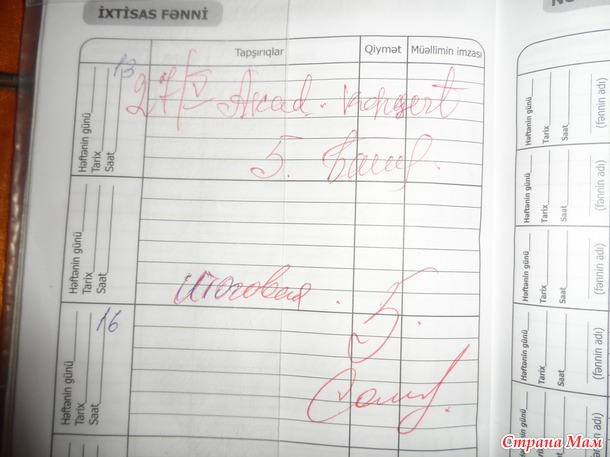 İXTİSAS FƏNNİ
Tapşırıqlar Qiymət Müəllimin imzası
Həftənin günü
Tarix
Saat 13
27/V Akad. konsert
5.
Həftənin günü
Tarix
Saat
итоговая. 5.
Həftənin günü
Tarix
Saat 16
Həftənin günü
Tarix
Saat
(fənnin adı)
Həftənin günü
Tarix
Saat
(fənnin adı)
Həftənin günü
Tarix
Saat
(fənnin adı)
Həftənin günü
Tarix
Saat
(fənnin adı)
Страна Мам